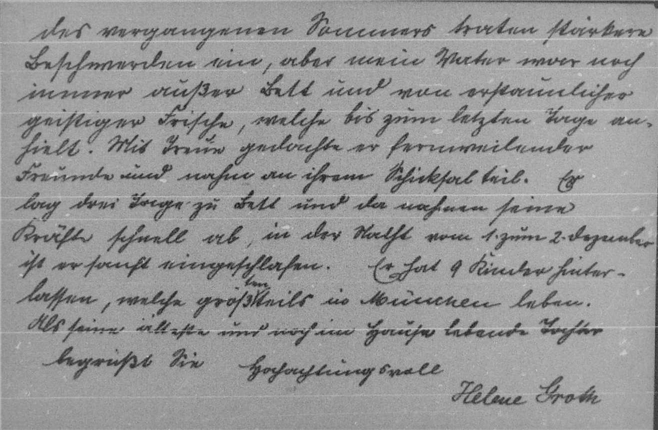 des vergangenen Sommers traten stärkere
Beschwerden ein, aber mein Vater war noch
immer außer Bett und von erstaunlicher
geistiger Frische, welche bis zum letzten Tage an-
hielt. Mit Treue gedachte er fernweilender
Freunde und nahm an ihrem Schicksal teil. Er
lag drei Tage zu Bett und da nahmen seine
Kräfte schnell ab, in der Nacht vom 1. zum 2. Dezember
ist er sanft eingeschlafen. Er hat 9 Kinder hinter-
lassen, welche größtenteils in München leben.
Als seine älteste und noch im Hause lebende Tochter
begrüßt Sie Hochachtungsvoll
Helene Groth